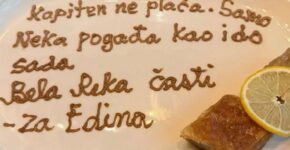 Kapiten ne plaća. Samo
Neka pogađa kao i do
sada
Bela Reka časti
- Za Edina